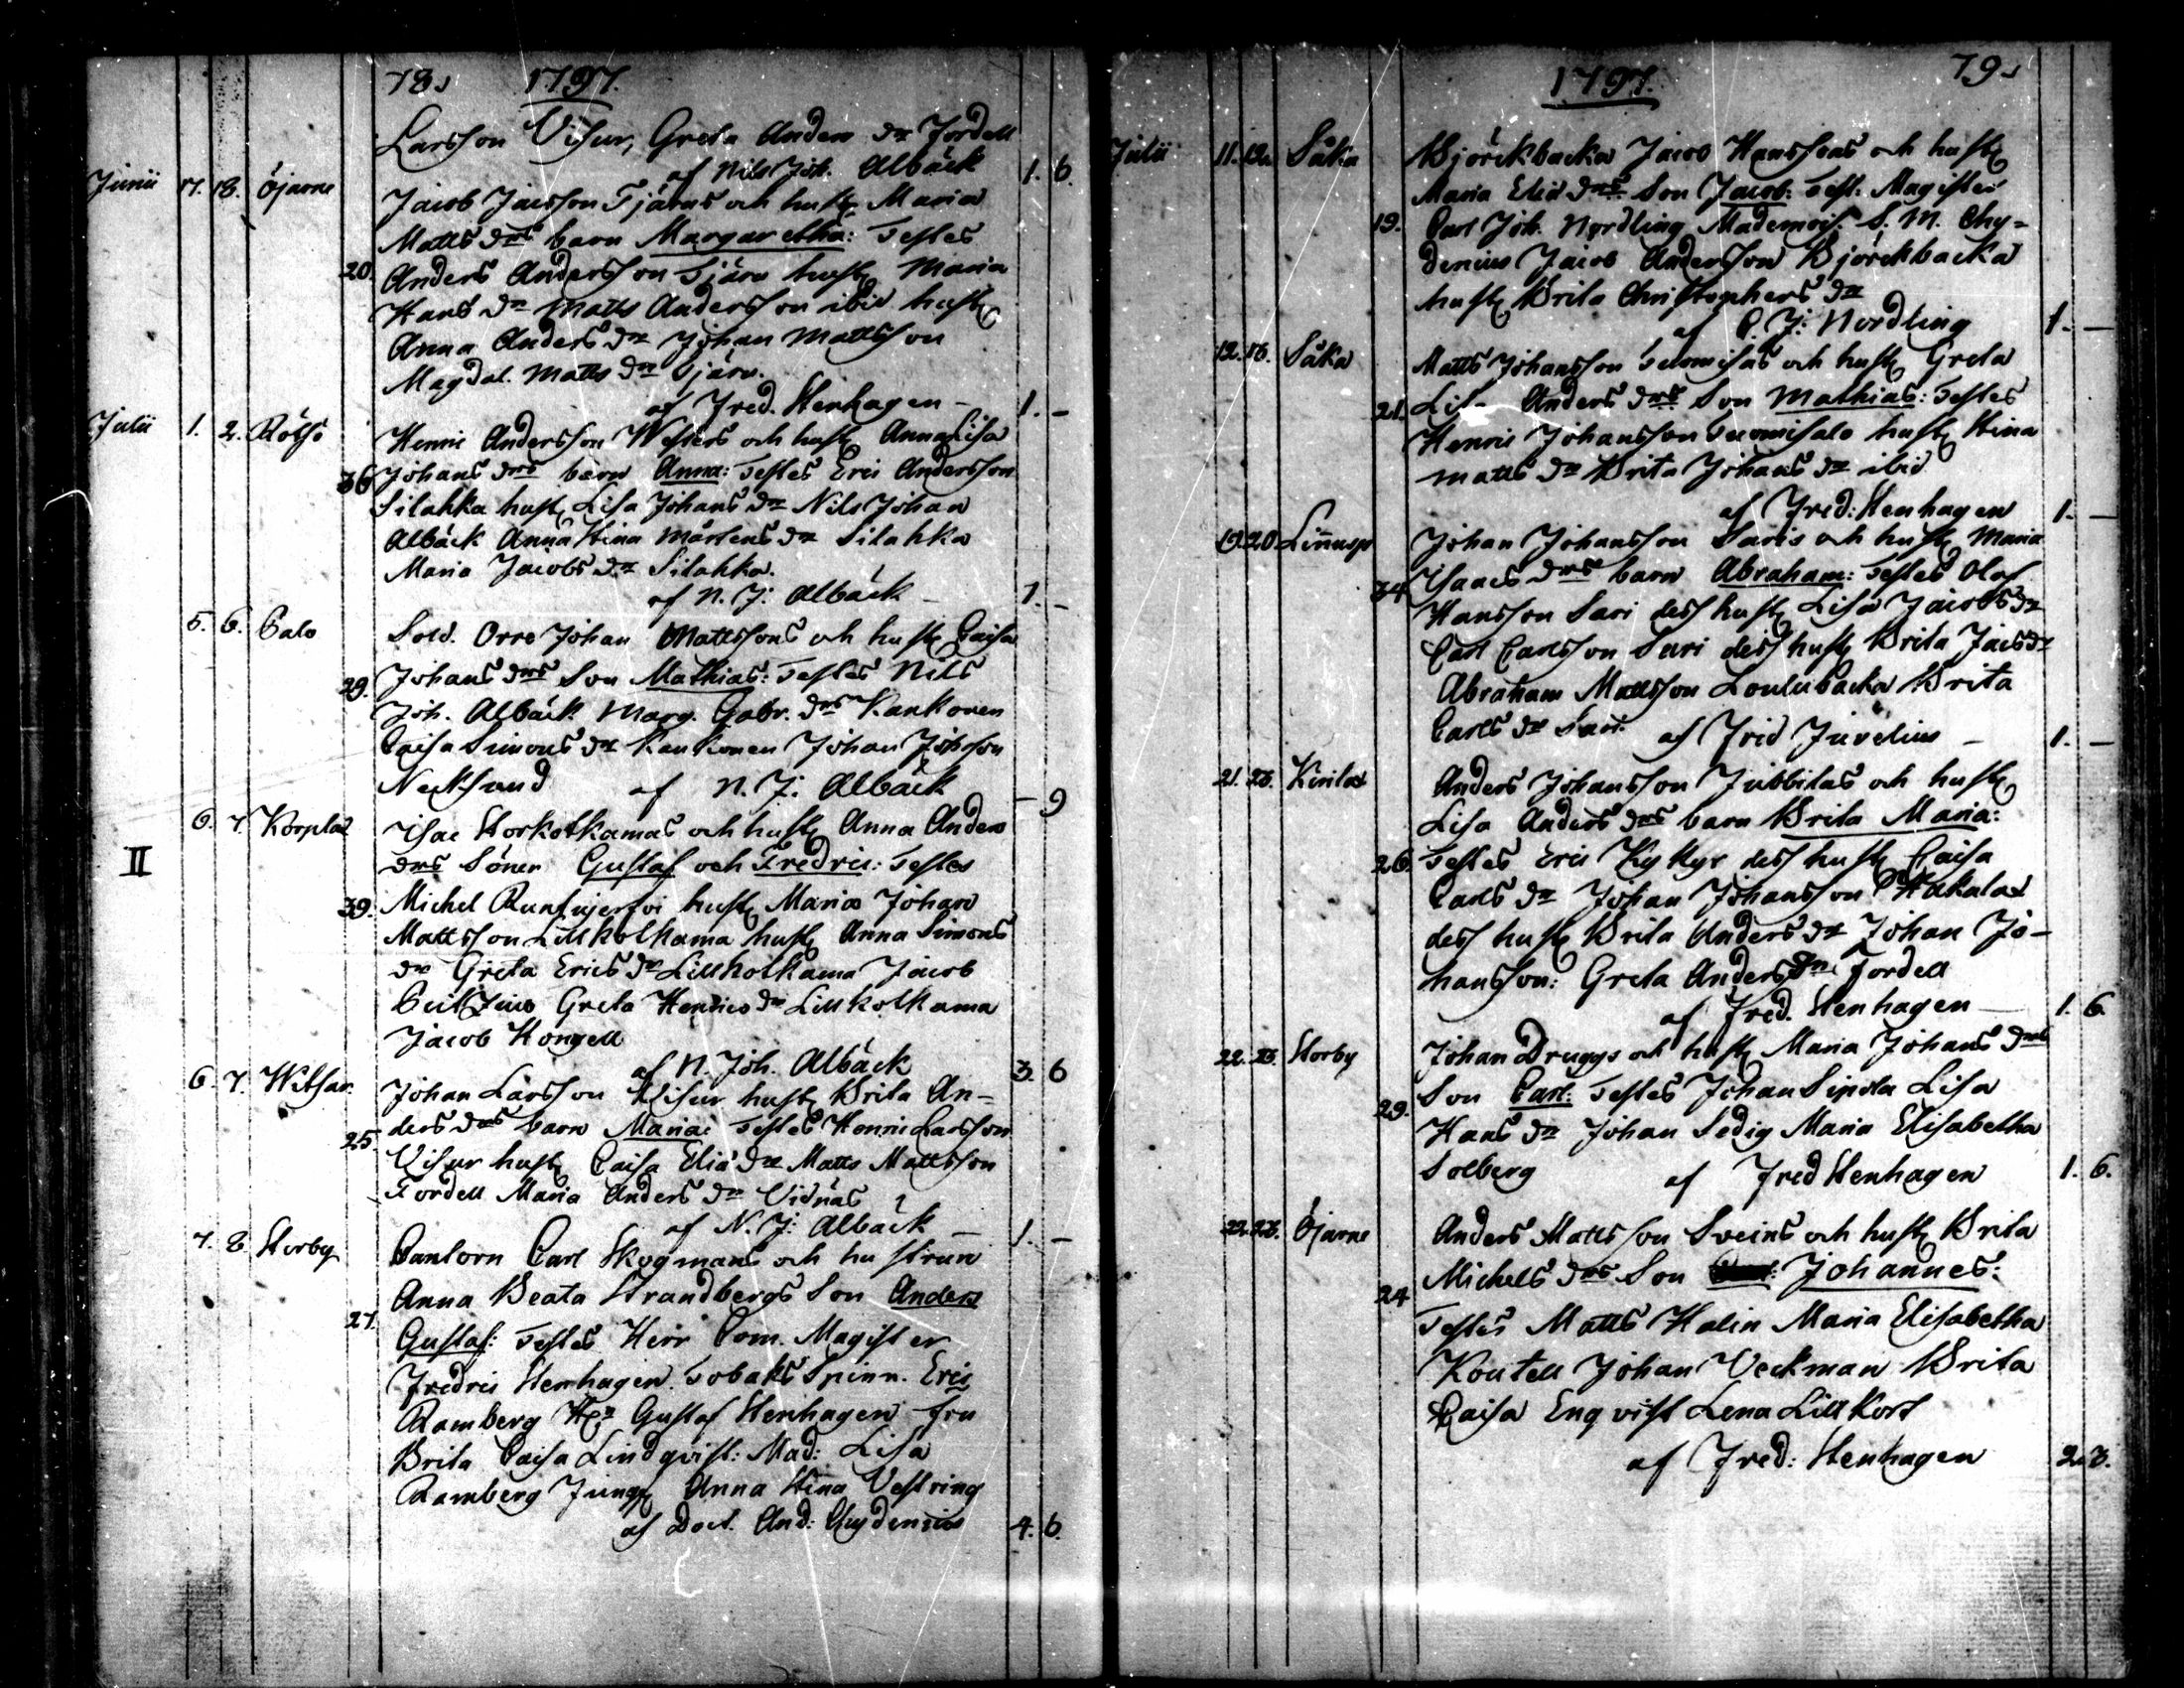 78. 1797.
Larsson Visur, Greta Anders dr Fordell
af Nils Joh. Albäck 1. 6.
Junii 17. 18. Öjarne Jacob Jacsson Tjärus och hustr Maria
Matts drs barn Margaretha: Testes
20. Anders Andersson Tjäru hustr Maria
Hans dr Matts Andersson ibid hustr
Anna Anders dr Johan Mattsson
Magdal. Matts dr Tjäru.
af Fred. Stenhagen - 1. -
Julii 1. 2. Rölsö Henric Andersson Westers och hustr Anna Lisa
36 Johans drs barn Anna: Testes Eric Andersson
Silahka hustr Lisa Johans dr Nils Johan
Albäck Anna Stina Mårtens dr Silahka
Maria Jacobs dr Silahka.
af N. J: Albäck - 1. -
5. 6. Palo Sold. Orre Johan Mattssons och hustr Caisa
29. Johans drs Son Mathias: Testes Nils
Joh. Albäck Marg. Gabr. drs Kankonen
Caisa Simons dr Kankonen Johan Johsson
Necksund af N. J: Albäck - 9
6. 7. Korplax Isac Storkotkamas och hustr Anna Anders
II drs Söner Gustaf och Fredric: Testes
39. Michel hustr Maria Johan
Mattsson Lillkotkama hustr Anna Simons
dr Greta Erics dr Lillkotkama Jacob
Greta Henrics dr Lillkotkama
Jacob Hongell
af N. Joh. Albäck 3. 6
6. 7. Witsar. Johan Larsson Visur hustr Brita An-
25. ders drs barn Maria: Testes Henric Larsson
Visur hustr Caisa Eliæ dr Matts Mattsson
Fordell Maria Anders dr Vidnäs
af N. J: Albäck - 1. -
7. 8 Storby Cantorn Carl Skogmans och hustrun
Anna Beata Strandbergs Son Anders
27. Gustaf: Testes Herr Com. Magister
Fredric Stenhagen Tobaks Spinn. Eric
Ramberg Hr Gustaf Stenhagen fru
Brita Caisa Lindqvist: Mad: Lisa
Ramberg Jungf Anna Stina Vestring
af Doct. And: Chydenius 4. 6.
1797. 79.
Julii 11. 12. Såka Björckbacka Jacob Hanssons och hustr
Maria Eliæ drs Son Jacob: Test. Magister
19. Carl Joh. Nordling Mademois. S. M. Chy-
denius Jacob Andersson Björckbacka
hustr Brita Christophers dr
af C. J: Nordling 1. -
12. 16. Såka Matts Johansson Suomisas och hustr Greta
21. Lisa Anders drs Son Mathias: Testes
Henric Johansson Suomisalo hustr Stina
Matts dr Brita Johans dr ibid
af Fred: Stenhagen 1. -
19. 20 Linnusp Johan Johansson Saris och hustr Maria
34. Isaacs drs barn Abraham: Testes Olof
Hansson Sari dess hustr Lisa Jacobs dr
Carl Carlsson Sari dess hustr Brita Jacs dr
Abraham Mattsson Loulubacka Brita
Carls dr Sari. af Frid Juvelius - 1. -
21. 23. Kirilax Anders Johansson Jubbilas och hustr
Lisa Anders drs barn Brita Maria:
26. Testes Eric Kykyr dess hustr Caisa
Carls dr Johan Johansson Hakalax
dess hustr Brita Anders dr Johan Jo-
hansson: Greta Anders dr Fordell
af Fred. Stenhagen - 1. 6
22. 23. Storby Johan Druggs och hustr Maria Johans drs
29. Son Carl: Testes Johan Sipola Lisa
Hans dr Johan Sedig Maria Elisabetha
Solberg af Fred Stenhagen 1. 6.
22. 23. Öjarne Anders Mattsson Sveins och hustr Brita
24 Michels drs Son Johannes:
Testes Matts Halin Maria Elisabetha
Koutell Johan Veckman Brita
Caisa Enqvist Lena Lill Kort
af Fred: Stenhagen 2. 3.